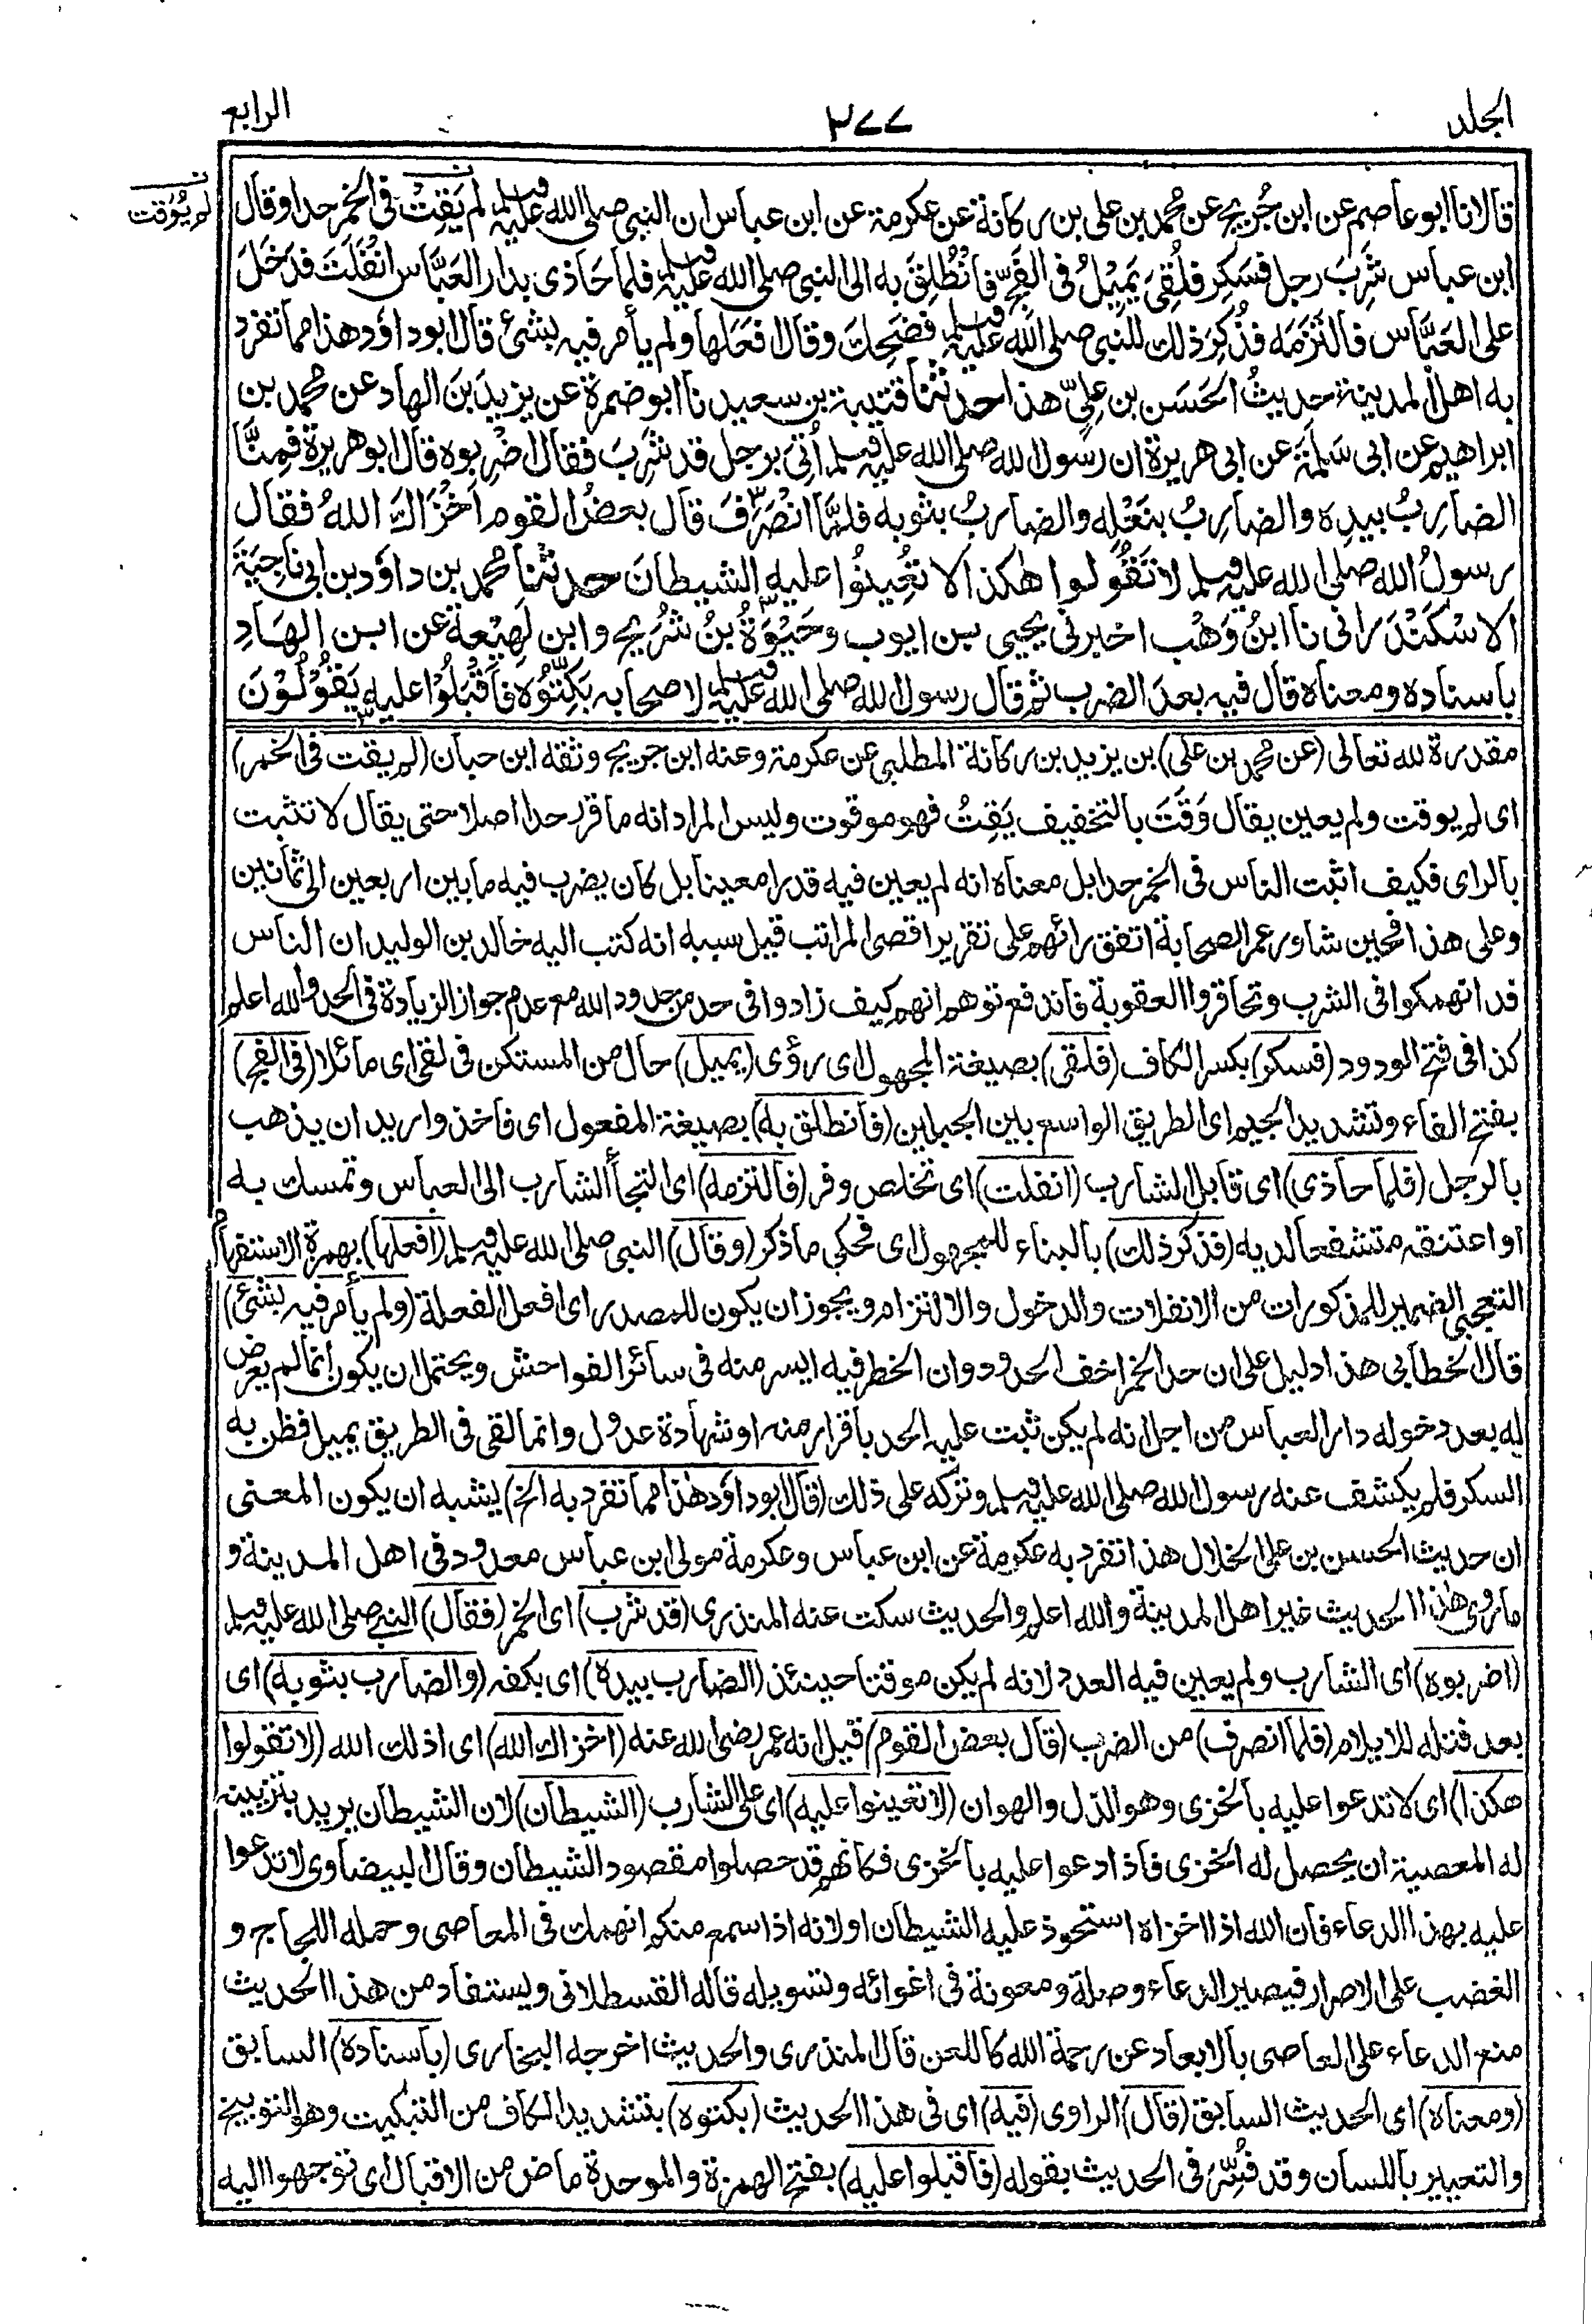 الجلد
٣٧٧
الرابع
لم يُوَقت
قالا نا ابو عاصم عن ابن جُريج عن محمد بن على بن ركانة عن عكرمة عن ابن عباس ان النبى صلى الله عليه وسلم لم يَقِتْ فى الخمر حدا وقال
ابن عباس شَرِبَ رجل فسَكِر فلُقِىَ يَمِيْلُ فى الفَجِّ فَانْطُلِقَ به الى النبى صلى الله عليه وسلم فلما حَاذى بدار العَبَّاس انْفَلَتَ فدَخَلَ
على العَبَّاس فالْتَزَمَه فذُكِرَ ذلك للنبى صلى الله عليه وسلم فضَحِكَ وقال افَعَلَها ولم يأمر فيه بشئ قال ابو داؤد هذا مما تفرد
به اهل المدينة حديثُ الحَسَن بن عِلىّ هذا حدثنا قتيبة بن سعيد نا ابو ضمرة عن يزيدَ بنَ الهاد عن محمد بن
ابراهيم عن ابى سَلَمَةَ عن ابى هريرة ان رسول الله صلى الله عليه وسلم اُتِىَ برجل قد شَرِبَ فقال اضْرِبوه قال ابو هريرة فمِنَّا
الضارِبُ بيدِه والضارِبُ بنَعْلِه والضاربُ بثوبه فلمَّا انْصَرَفَ قال بعضُ القوم اَخْزَاكَ اللهُ فقال
رسولُ الله صلى الله عليه وسلم لا تَقُولوا هٰكذا لا تُعِينُوا عليه الشيطانَ حدثنا محمد بن داؤد بن ابى ناجِيَةَ
الاسْكَنْدَرانى نا ابنُ وَهْب اخبرنى يحيى بن ايوب وحَيْوَةُ بنُ شُرَيح وابن لَهِيْعة عن ابن الهَادِ
باسناده ومعناه قال فيه بعدَ الضرب ثم قال رسول الله صلى الله عليه وسلم لاصحابه بَكِّتُوْه فَاَقْبَلُوْا عليه يَقُوْلُوْنَ
مقدرة لله تعالى (عن محمد بن على) بن يزيد بن ركانة المطلبى عن عكرمة وعنه ابن جريج وثقه ابن حبان (لم يقت فى الخمر)
اى لم يوقت ولم يعين يقال وَقَتَ بالتخفيف يَقِتُ فهو موقوت وليس المراد انه ما قرر حدا اصلا حتى يقال لا تثبت
بالراى فكيف اثبت الناس فى الخمر حدا بل معناه انه لم يعين فيه قدرا معينا بل كان يضرب فيه ما بين اربعين الى ثمانين
وعلى هذا فحين شاور عمر الصحابة اتفق رائهم على تقرير اقصى المراتب قيل سببه انه كتب اليه خالد بن الوليد ان الناس
قد انهمكوا فى الشرب وتحاقروا العقوبة فاندفع توهم انهم كيف زادوا فى حد من حدود الله مع عدم جواز الزيادة فى الحد والله اعلم
كذا فى فتح الودود (فسكر) بكسر الكاف (فلقى) بصيغة المجهول اى رؤى (يميل) حال من المستكن فى لقى اى مائلا (فى الفج)
بفتح الفاء وتشديد الجيم اى الطريق الواسع بين الجبلين (فانطلق به) بصيغة المفعول اى فاخذ واريد ان يذهب
بالرجل (فلما حاذى) اى قابل الشارب (انفلت) اى تخلص وفر (فالتزمه) اى التجأ الشارب الى العباس وتمسك به
او اعتنقه متشفعا لديه (فذكر ذلك) بالبناء للمجهول اى فحكى ما ذكر (وقال) النبى صلى الله عليه وسلم (افعلها) بهمزة الاستفهام
التعجبى الضمير للمذكورات من الانفلات والدخول والالتزام ويجوز ان يكون للمصدر اى افعل الفعلة (ولم يأمر فيه بشئ)
قال الخطابى هذا دليل على ان حد الخمر اخف الحدود وان الخطر فيه ايسر منه فى سائر الفواحش ويحتمل ان يكون انما لم يعرض
له بعد دخوله دار العباس من اجل انه لم يكن ثبت عليه الحد باقرار منه او شهادة عدول وانما لقى فى الطريق يميل فظن به
السكر فلم يكشف عنه رسول الله صلى الله عليه وسلم وتركه على ذلك (قال ابو داؤد هذا مما تفرد به الخ) يشبه ان يكون المعنى
ان حديث الحسن بن على الخلال هذا تفرد به عكرمة عن ابن عباس وعكرمة مولى ابن عباس معدود فى اهل المدينة و
ما روى هذا الحديث غير اهل المدينة والله اعلم والحديث سكت عنه المنذرى (قد شرب) اى الخمر (فقال) النبى صلى الله عليه وسلم
(اضربوه) اى الشارب ولم يعين فيه العدد لانه لم يكن موقتا حينئذ (الضارب بيده) اى بكفه (والضارب بثوبه) اى
بعد فتله للايلام (فلما انصرف) من الضرب (قال بعض القوم) قيل انه عمر رضى الله عنه (اخزاك الله) اى اذلك الله (لا تقولوا
هكذا) اى لا تدعوا عليه بالخزى وهو الذل والهوان (لا تعينوا عليه) اى على الشارب (الشيطان) لان الشيطان يريد بتزيينه
له المعصية ان يحصل له الخزى فاذا دعوا عليه بالخزى فكانهم قد حصلوا مقصود الشيطان وقال البيضاوى لا تدعوا
عليه بهذا الدعاء فان الله اذا اخزاه استحوذ عليه الشيطان او لانه اذا سمع منكم انهمك فى المعاصى وحمله اللجاج و
الغضب على الاصرار فيصير الدعاء وصلة ومعونة فى اغوائه وتسويله قاله القسطلانى ويستفاد من هذا الحديث
منع الدعاء على العاصى بالابعاد عن رحمة الله كاللعن قال المنذرى والحديث اخرجه البخارى (باسناده) السابق
(ومعناه) اى الحديث السابق (قال) الراوى (فيه) اى فى هذا الحديث (بكتوه) بتشديد الكاف من التبكيت وهو التوبيخ
والتعيير باللسان وقد فُسِّرَ فى الحديث بقوله (فاقبلوا عليه) بفتح الهمزة والموحدة ماض من الاقبال اى توجهوا اليه